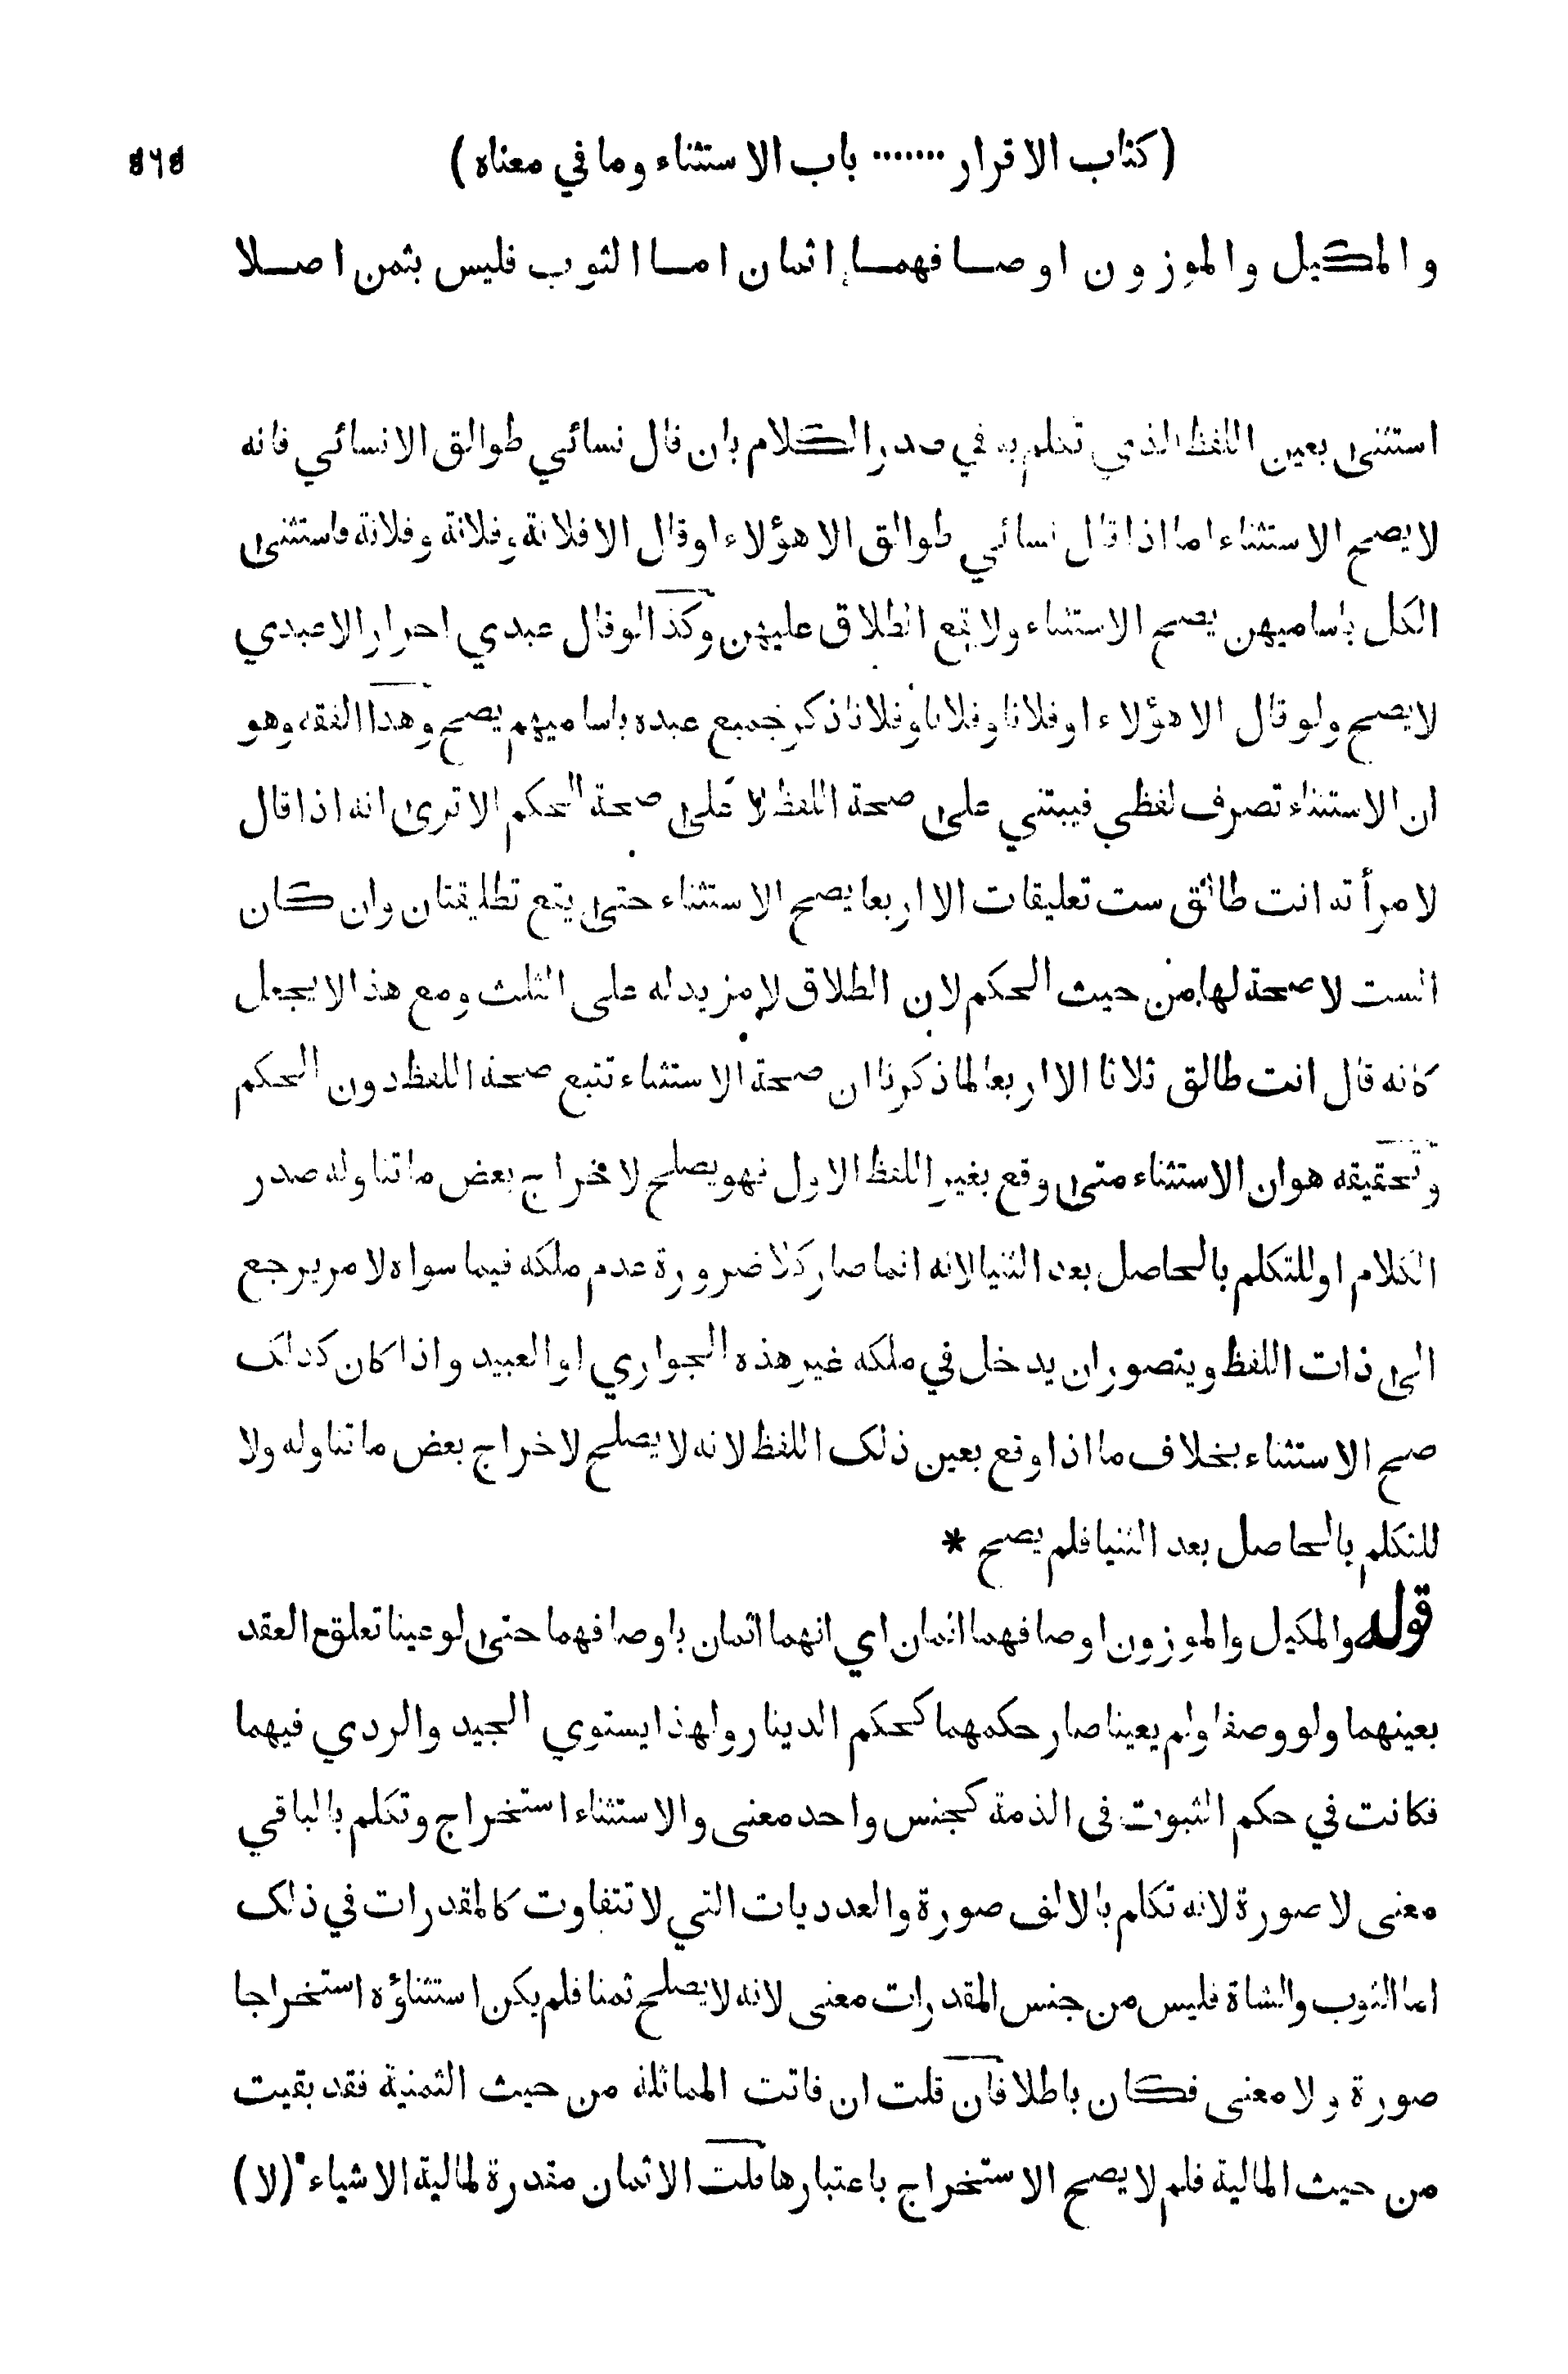 (كتاب الاقرار ······· باب الاستثناء وما في معناه) ٥٦٥
والمكيل والموزون اوصافهما اثمان اما الثوب فليس بثمن اصلا
استثنى بعين اللفظ الذي تكلم به في صدر الكلام بان قال نسائي طوالق الا نسائي فانه
لا يصح الاستثناء اما اذا قال نسائي طوالق الا هؤلاء او قال الا فلانة وفلانة وفلانة فاستثنى
الكل باساميهن يصح الاستثناء ولا يقع الطلاق عليهن وكذا لو قال عبدي احرار الا عبدي
لا يصح ولو قال الا هؤلاء او فلانا وفلانا وفلانا ذكر جميع عبده باساميهم يصح وهذا الفقه وهو
ان الاستثناء تصرف لفظي فيبتني على صحة اللفظ لا على صحة الحكم الا ترى انه اذا قال
لامرأته انت طالق ست تعليقات الا اربعا يصح الاستثناء حتى يقع تطليقتان وان كان
الست لا صحة لها من حيث الحكم لان الطلاق لا مزيد له على الثلث ومع هذا لا يجعل
كانه قال انت طالق ثلاثا الا اربعا لما ذكرنا ان صحة الاستثناء تتبع صحة اللفظ دون الحكم
وتحقيقه هو ان الاستثناء متى وقع بغير اللفظ الاول فهو يصلح لاخراج بعض ما تناوله صدر
الكلام او للتكلم بالحاصل بعد الثنيا لانه انما صار كلا ضرورة عدم ملكه فيما سواه لا مر يرجع
الى ذات اللفظ ويتصور ان يدخل في ملكه غير هذه الجواري او العبيد واذا كان كذلك
صح الاستثناء بخلاف ما اذا وقع بعين ذلك اللفظ لانه لا يصلح لاخراج بعض ما تناوله ولا
للتكلم بالحاصل بعد الثنيا فلم يصح *
قوله والمكيل والموزون اوصافهما اثمان اي انهما اثمان باوصافهما حتى لو عينا تعلق العقد
بعينهما ولو وصفا ولم يعينا صار حكمهما كحكم الدينار ولهذا يستوي الجيد والردي فيهما
فكانت في حكم الثبوت في الذمة كجنس واحد معنى والاستثناء استخراج وتكلم بالباقي
معنى لا صورة لانه تكلم بالالف صورة والعدديات التي لا تتفاوت كالمقدرات في ذلك
اما الثوب والشاة فليس من جنس المقدرات معنى لانه لا يصلح ثمنا فلم يكن استثناؤه استخراجا
صورة ولا معنى فكان باطلا فان قلت ان فاتت المماثلة من حيث الثمنية فقد بقيت
من حيث المالية فلم لا يصح الاستخراج باعتبارها قلت الاثمان مقدرة لمالية الاشياء (لا)